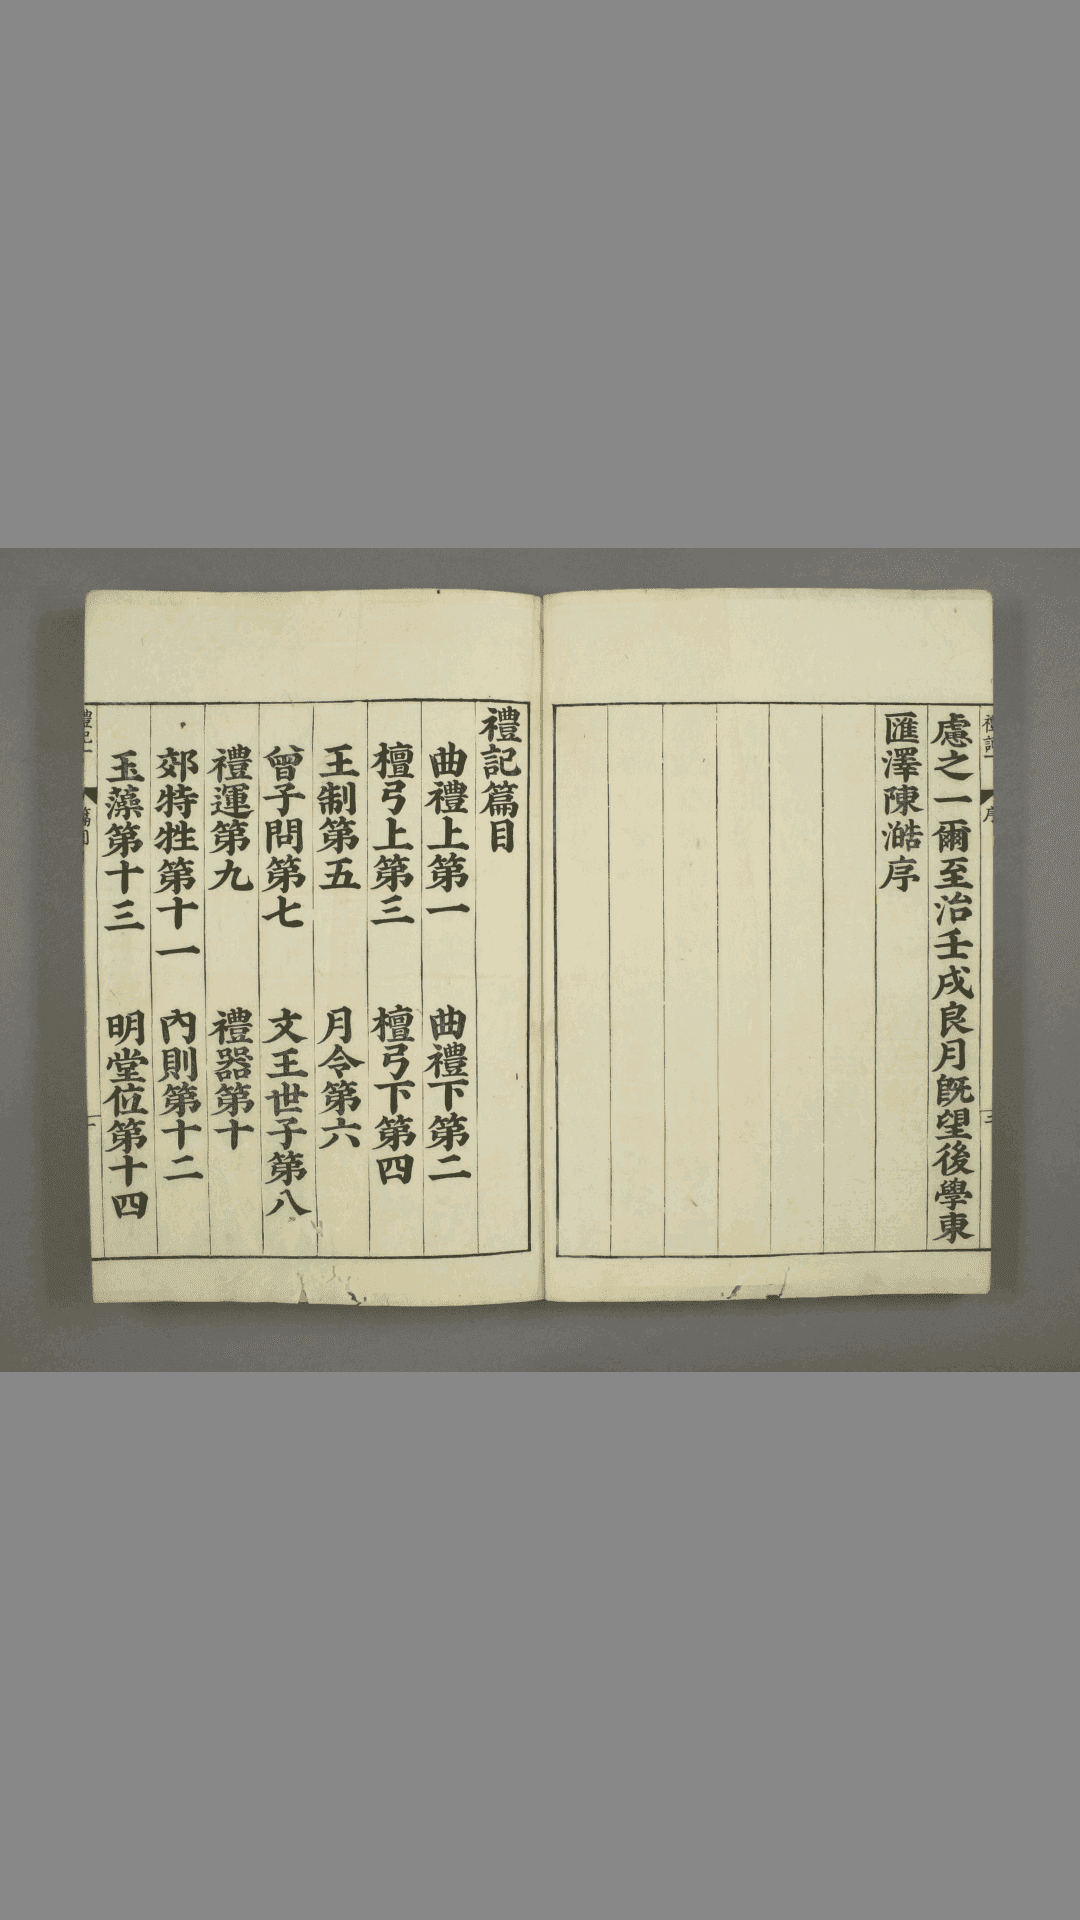 慮之一爾至治壬戌良月旣望後學東
匯澤陳澔序
禮記篇目
曲禮上第一　曲禮下第二
檀弓上第三　檀弓下第四
王制第五　月令第六
曾子問第七　文王世子第八
禮運第九　禮器第十
郊特牲第十一　內則第十二
玉藻第十三　明堂位第十四